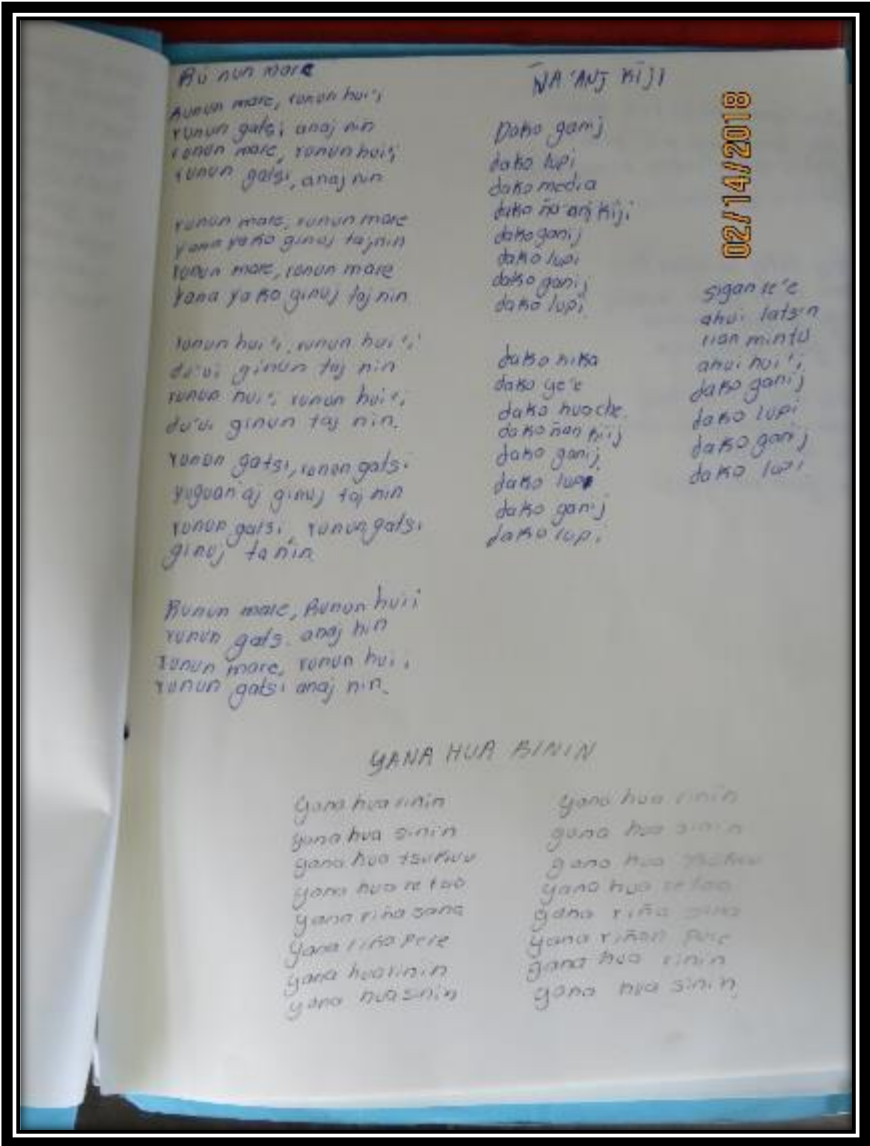 Ru nun mare
Runun mare, runun hui'i
runun gatsi anaj nin
runun mare, runun hui'i
runun gatsi, anaj nin
runun mare, runun mare
yana yako ginuj taj nin
runun mare, runun mare
yana yako ginuj taj nin
runun hui'i, runun hui'i
du'ui ginun taj nin
runun hui'i, runun hui'i
du'ui ginun taj nin.
runun gatsi, runun gatsi
yuguan'aj ginuj taj nin
runun gatsi, runun gatsi
ginuj ta nin.
Runun mare, Runun huii
runun gats. anaj nin
runun mare, runun hui i
runun gatsi anaj nin.
ÑA'ANJ KIJI
Dako ganij
dako lupi
dako media
dako ña'anj kiji
dako ganij
dako lupi
dako ganij
dako lupi
dako nika
dako ye'e
dako huache
dako ñan kiij
dako ganij
dako lupi
dako ganij
dako lupi
sigan re'e
ahui lats'n
rian mintu
ahui hui'i
dako ganij
dako lupi
dako ganij
dako lupi
02/14/2018
YANA HUA RININ
yana hua rinin
yana hua sinin
yana hua tsukuu
yana hua retao
yana riña sana
yana riña pere
yana hua rinin
yana hua sinin
yana hua rinin
yana hua sinin
yana hua tsukuu
yana hua retao
yana riña sana
yana riñan pere
yana hua rinin
yana hua sinin